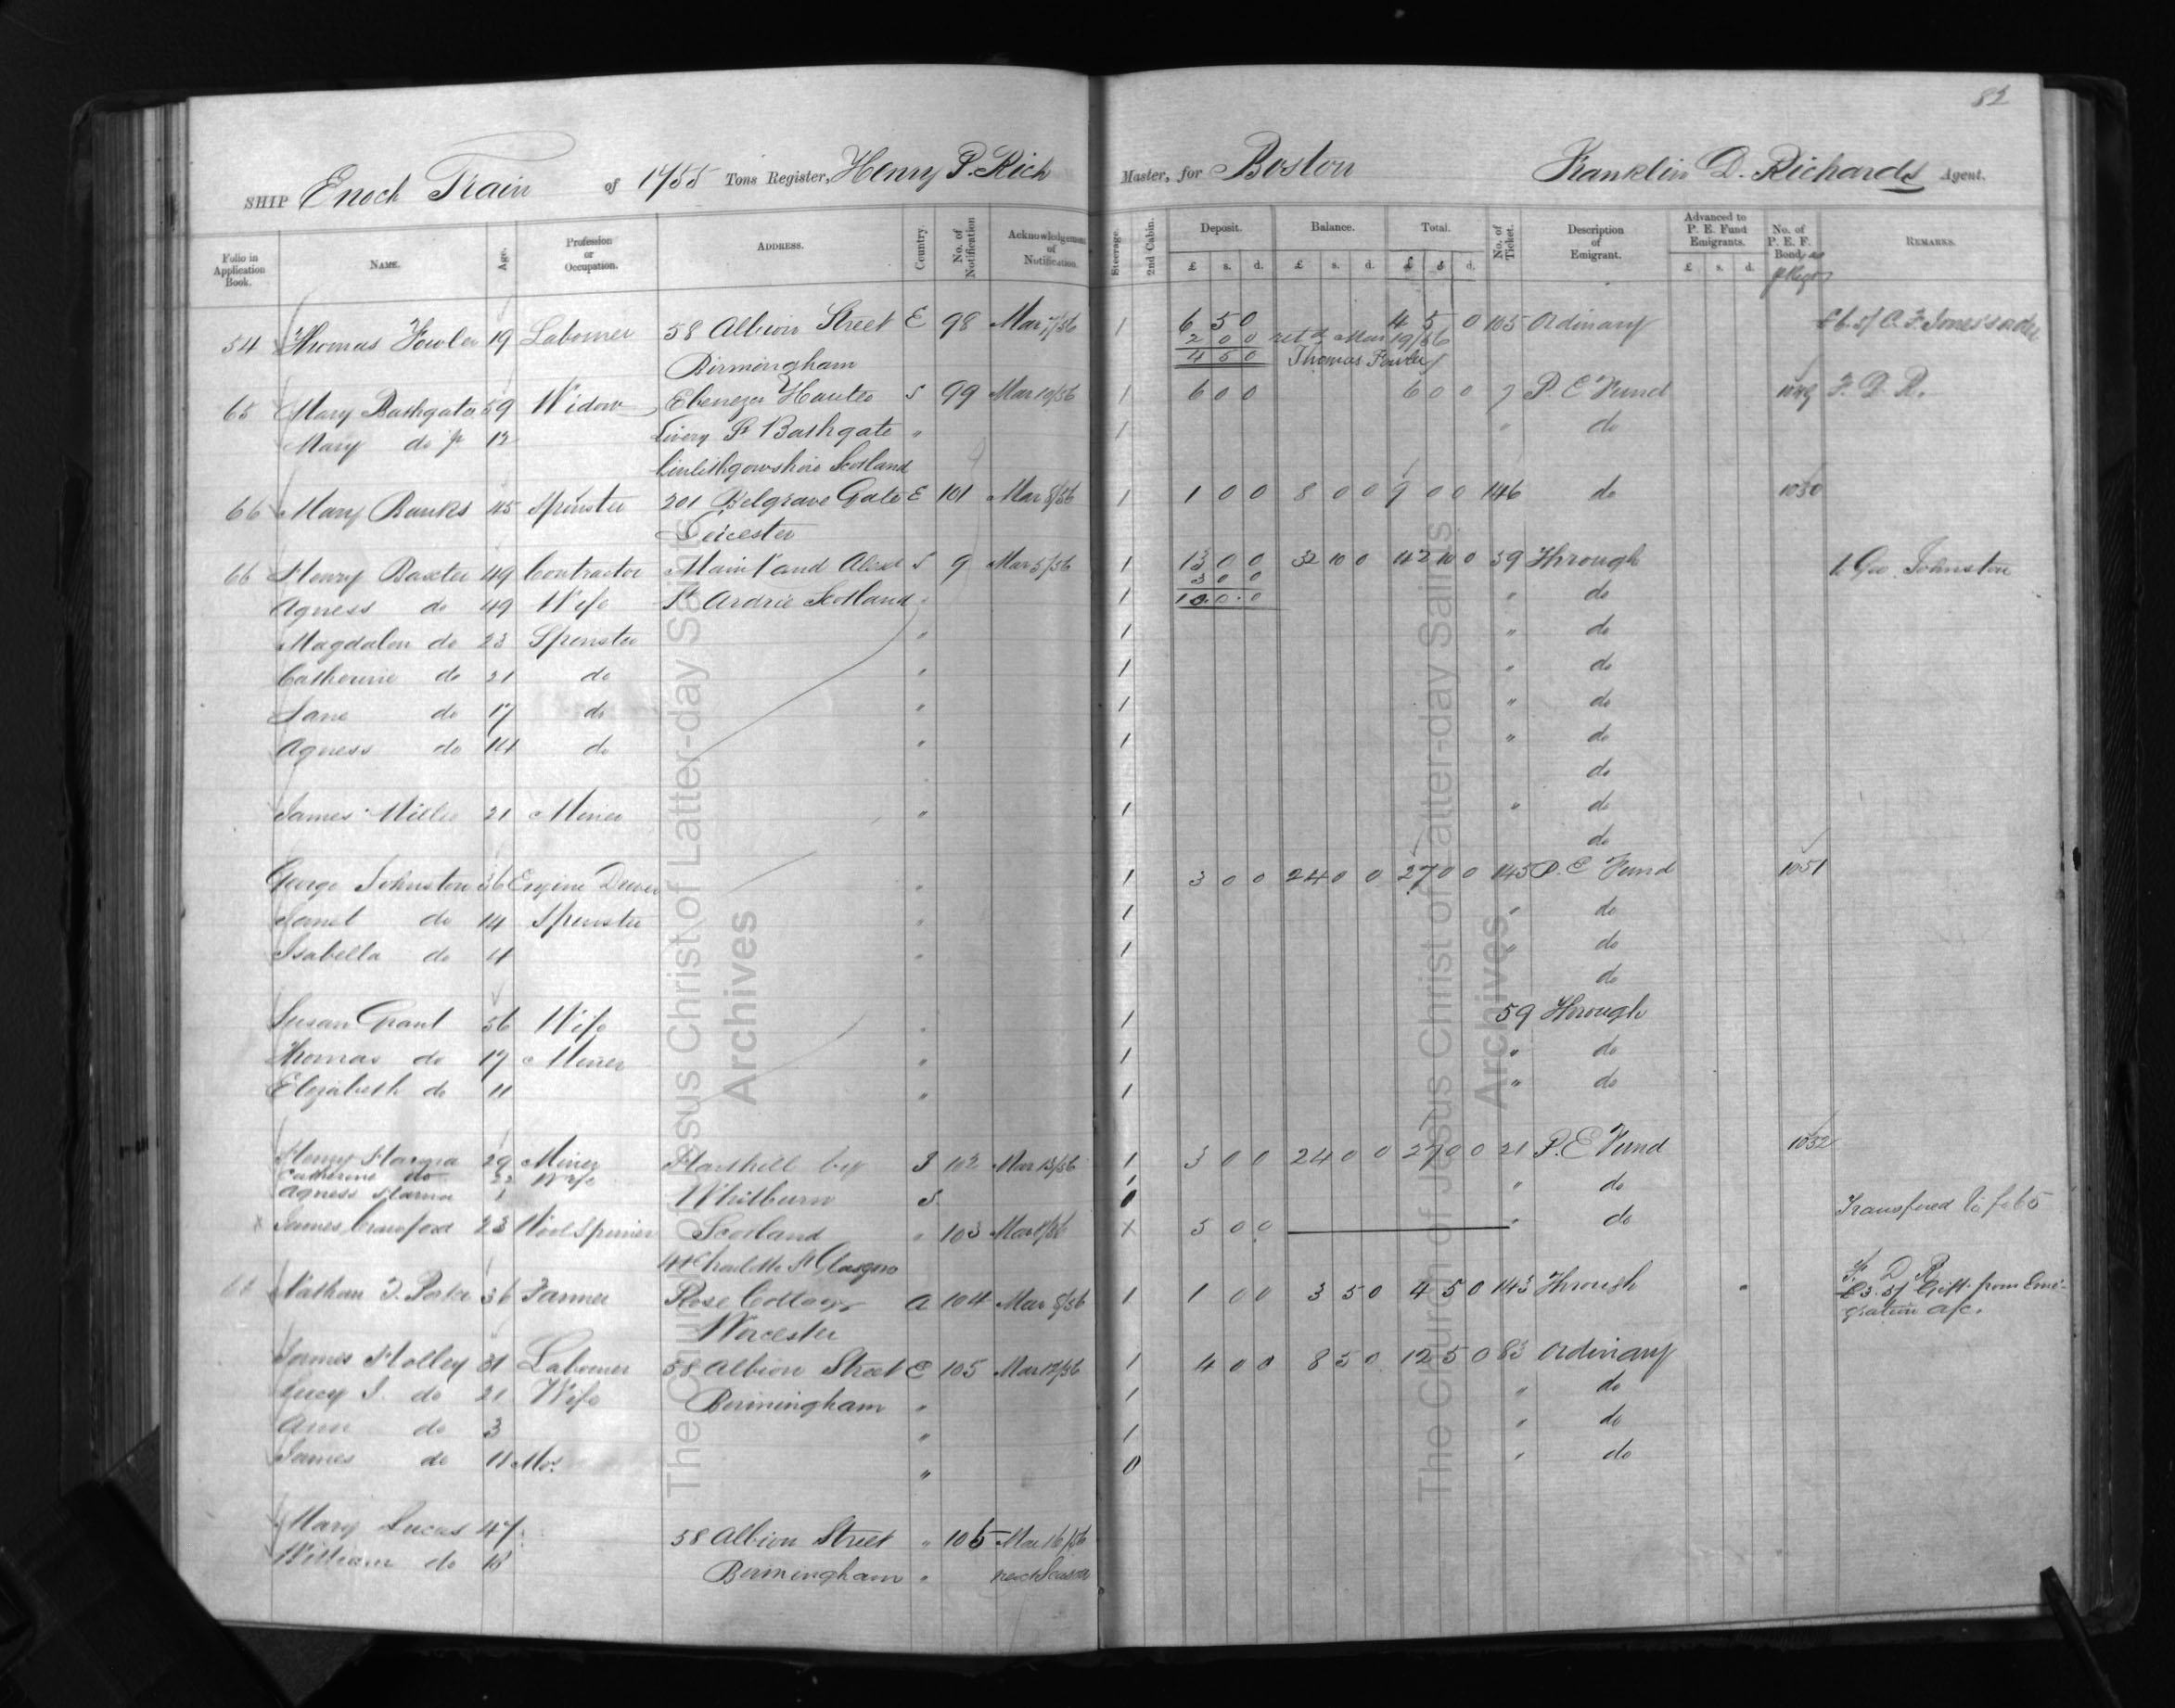 82
SHIP Enoch Train of 1755 Tons Register, Henry P. Rich Master, for Boston Franklin D. Richards Agent.
Folio in Application Book. NAME. Age. Profession or Occupation. ADDRESS. Country. No. of Notification Acknowledgement of Notification. Steerage. 2nd Cabin. Deposit. £ s. d. Balance. £ s. d. Total. £ s. d. No. of Ticket. Description of Emigrant. Advanced to P. E. Fund Emigrants. £ s. d. No. of P. E. F. Bond. REMARKS.
54 Thomas Fowler 19 Labourer 58 Albion Street E 98 Mar 7/56 1 6 5 0 4 5 0 105 Ordinary
2 0 0 retd Mar 19/56
Birmingham 4 5 0 Thomas Fowler
65 Mary Bathgate 59 Widow Ebenezer Hunter S 99 Mar 10/56 1 6 0 0 6 0 0 7 P. E. Fund F. D. R.
Mary do jr 12 Livery St Bathgate " 1 " do
Linlithgowshire Scotland
66 Mary Banks 45 Spinster 201 Belgrave Gate E 101 Mar 8/56 1 1 0 0 8 0 0 9 0 0 146 do 1050
Leicester
66 Henry Baxter 49 Contractor Main St and S 9 Mar 5/56 1 13 0 0 32 10 0 42 10 0 59 Through to Geo. Johnston
3 0 0
Agness do 49 Wife St Ardrie Scotland " 1 10 . 0 . 0 " do
Magdalen do 23 Spinster " 1 " do
Catherine do 21 do " 1 " do
Jane do 17 do " 1 " do
Agness do 14 do " 1 " do
do
James Millie 21 Miner " 1 " do
do
George Johnston 36 Engine Driver " 1 3 0 0 24 0 0 27 0 0 145 P. E. Fund 1051
Janet do 14 Spinster " 1 " do
Isabella do 4 " 1 " do
do
Susan Grant 56 Wife " 1 59 Through
Thomas do 17 Miner " 1 " do
Elizabeth do 11 " 1 " do
Henry 29 Miner Harthill by S 102 Mar 13/56 1 3 0 0 24 0 0 27 0 0 21 P. E. Fund 1052
Catherine do 22 Wife 1
Agness 1 Whitburn S 0 " do
x James Crawford 23 Wool Spinner Scotland " 103 Mar 8/56 X 5 0 0 " do Transfered to fol 5
44 Charlotte St Glasgow
Nathan T. Porter 36 Farmer Rose Cottage A 104 Mar 8/56 1 1 0 0 3 5 0 4 5 0 143 Through F. D. R.
£3. 5/ Gift from Emi-
Worcester gration a/c.
James Holley 31 Labourer 58 Albion Street E 105 Mar 12/56 1 4 0 0 8 5 0 12 5 0 83 Ordinary
Lucy J. do 21 Wife Birmingham " 1 " do
Ann do 3 " 1 " do
James do 11 Mos. " 0 " do
Mary Lucas 47 58 Albion Street " 106 Mar 16/56
William do 18 Birmingham " next Season
The Church of Jesus Christ of Latter-day Saints
Archives
The Church of Jesus Christ of Latter-day Saints
Archives